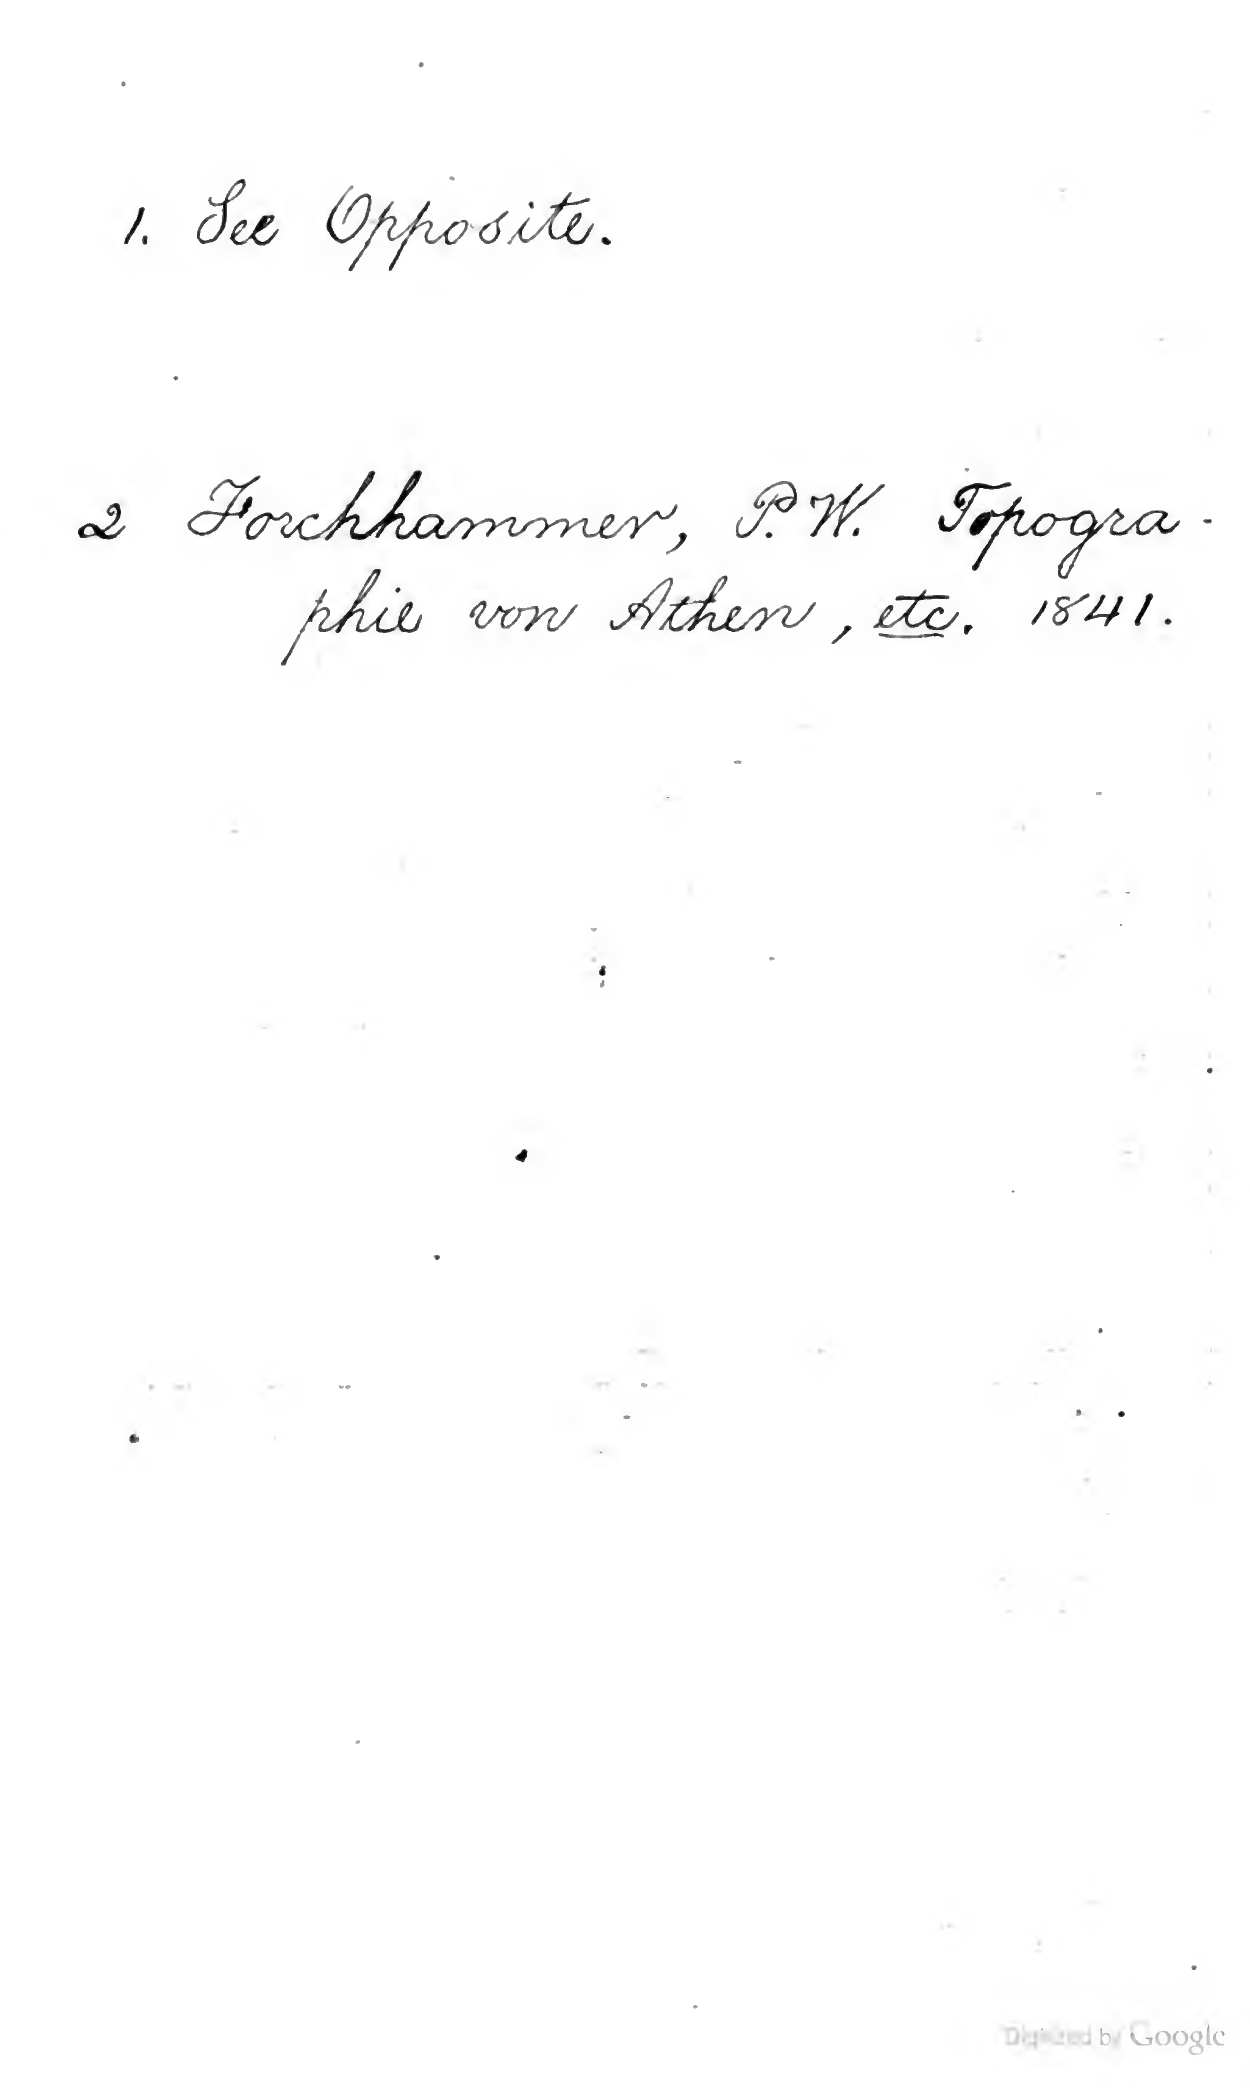 1. See Opposite.
2 Forchhammer, P. W. Topogra-
phie von Athen, etc. 1841.
Digitized by Google